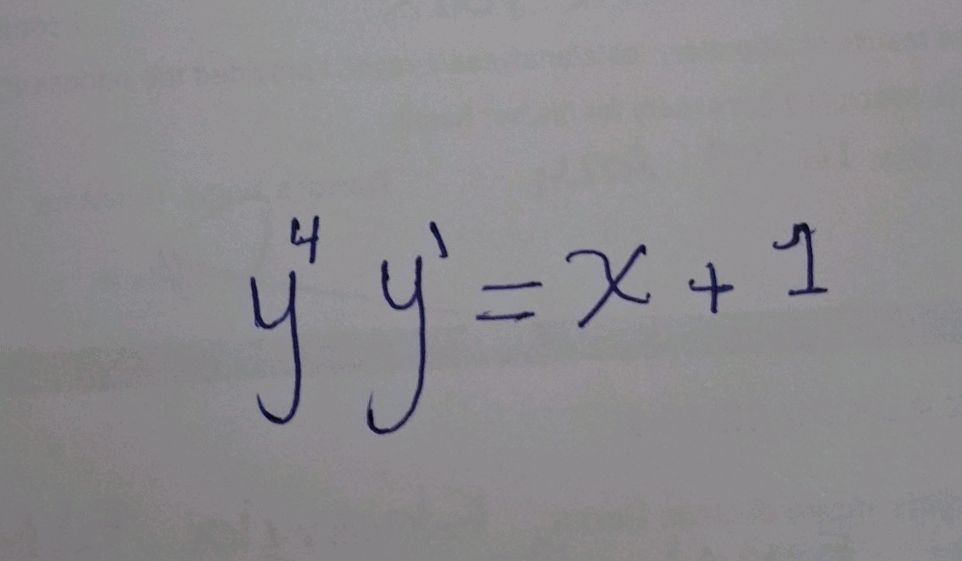 y⁴ y' = x + 1